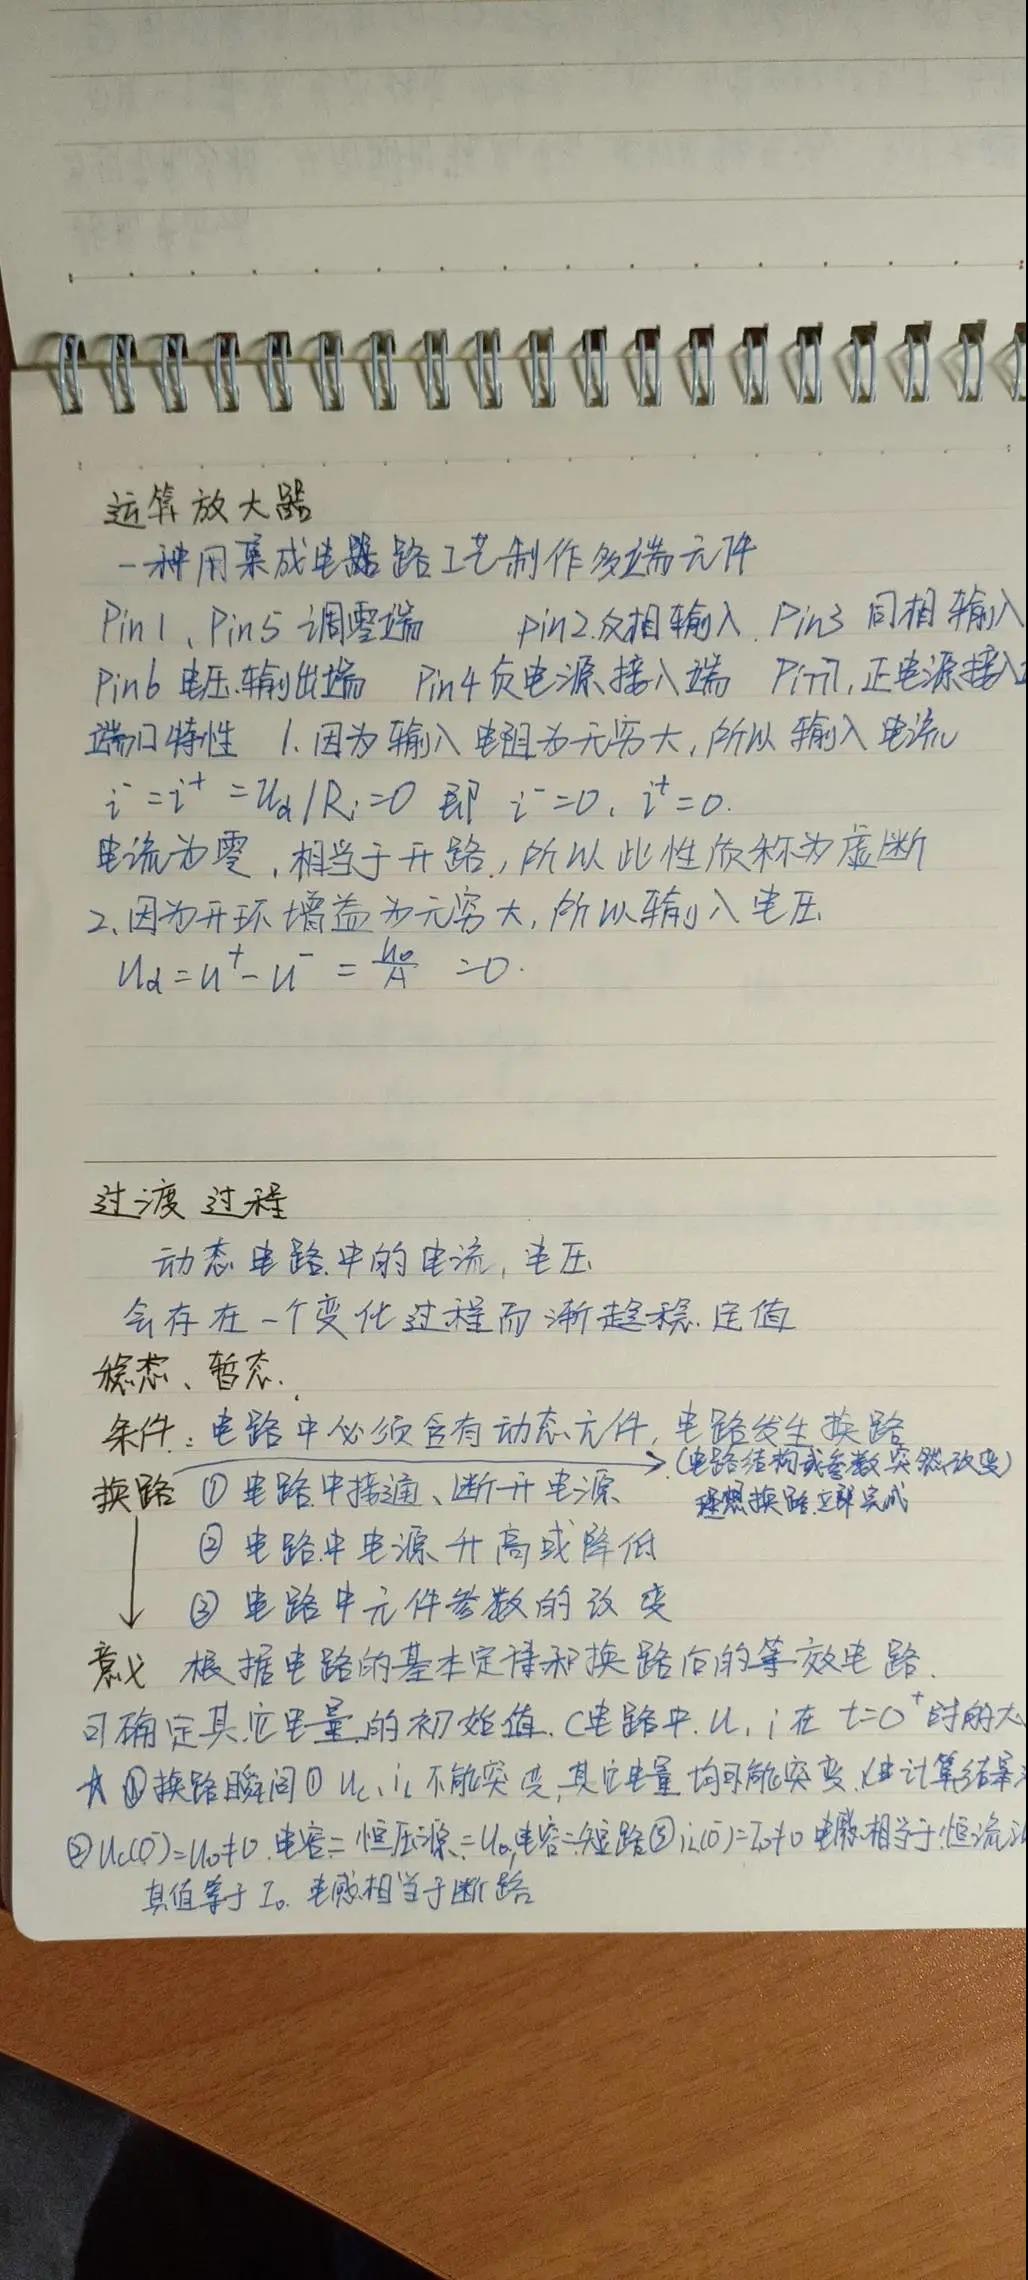 运算放大器
一种用集成电路工艺制作多端元件
Pin1、Pin5 调零端 Pin2.反相输入. Pin3 同相输入
Pin6 电压输出端 Pin4负电源接入端 Pin7,正电源接入
端口特性 1.因为输入电阻为无穷大,所以输入电流
i⁻=i⁺=ud/Ri=0 即 i⁻=0, i⁺=0.
电流为零,相当于开路,所以此性质称为虚断
2.因为开环增益为无穷大,所以输入电压
ud=u⁺-u⁻=uo/A=0.
过渡过程
动态电路中的电流,电压
会存在一个变化过程而渐趋稳定值
稳态、暂态.
条件:电路中必须含有动态元件,电路发生换路
(电路结构或参数突然改变)
换路 ①电路中接通、断开电源 理想换路立即完成
②电路中电源升高或降低
③电路中元件参数的改变
意义 根据电路的基本定律和换路后的等效电路.
可确定其它电量的初始值.(电路中.u,i在t=0⁺时的大
换路瞬间① uc、iL不能突变,其它电量均可能突变.(由计算结果
②uc(0⁻)=u0≠0.电容=恒压源=u0,电容=短路③iL(0⁻)=I0≠0 电感相当于恒流
其值等于I0. 电感相当于断路